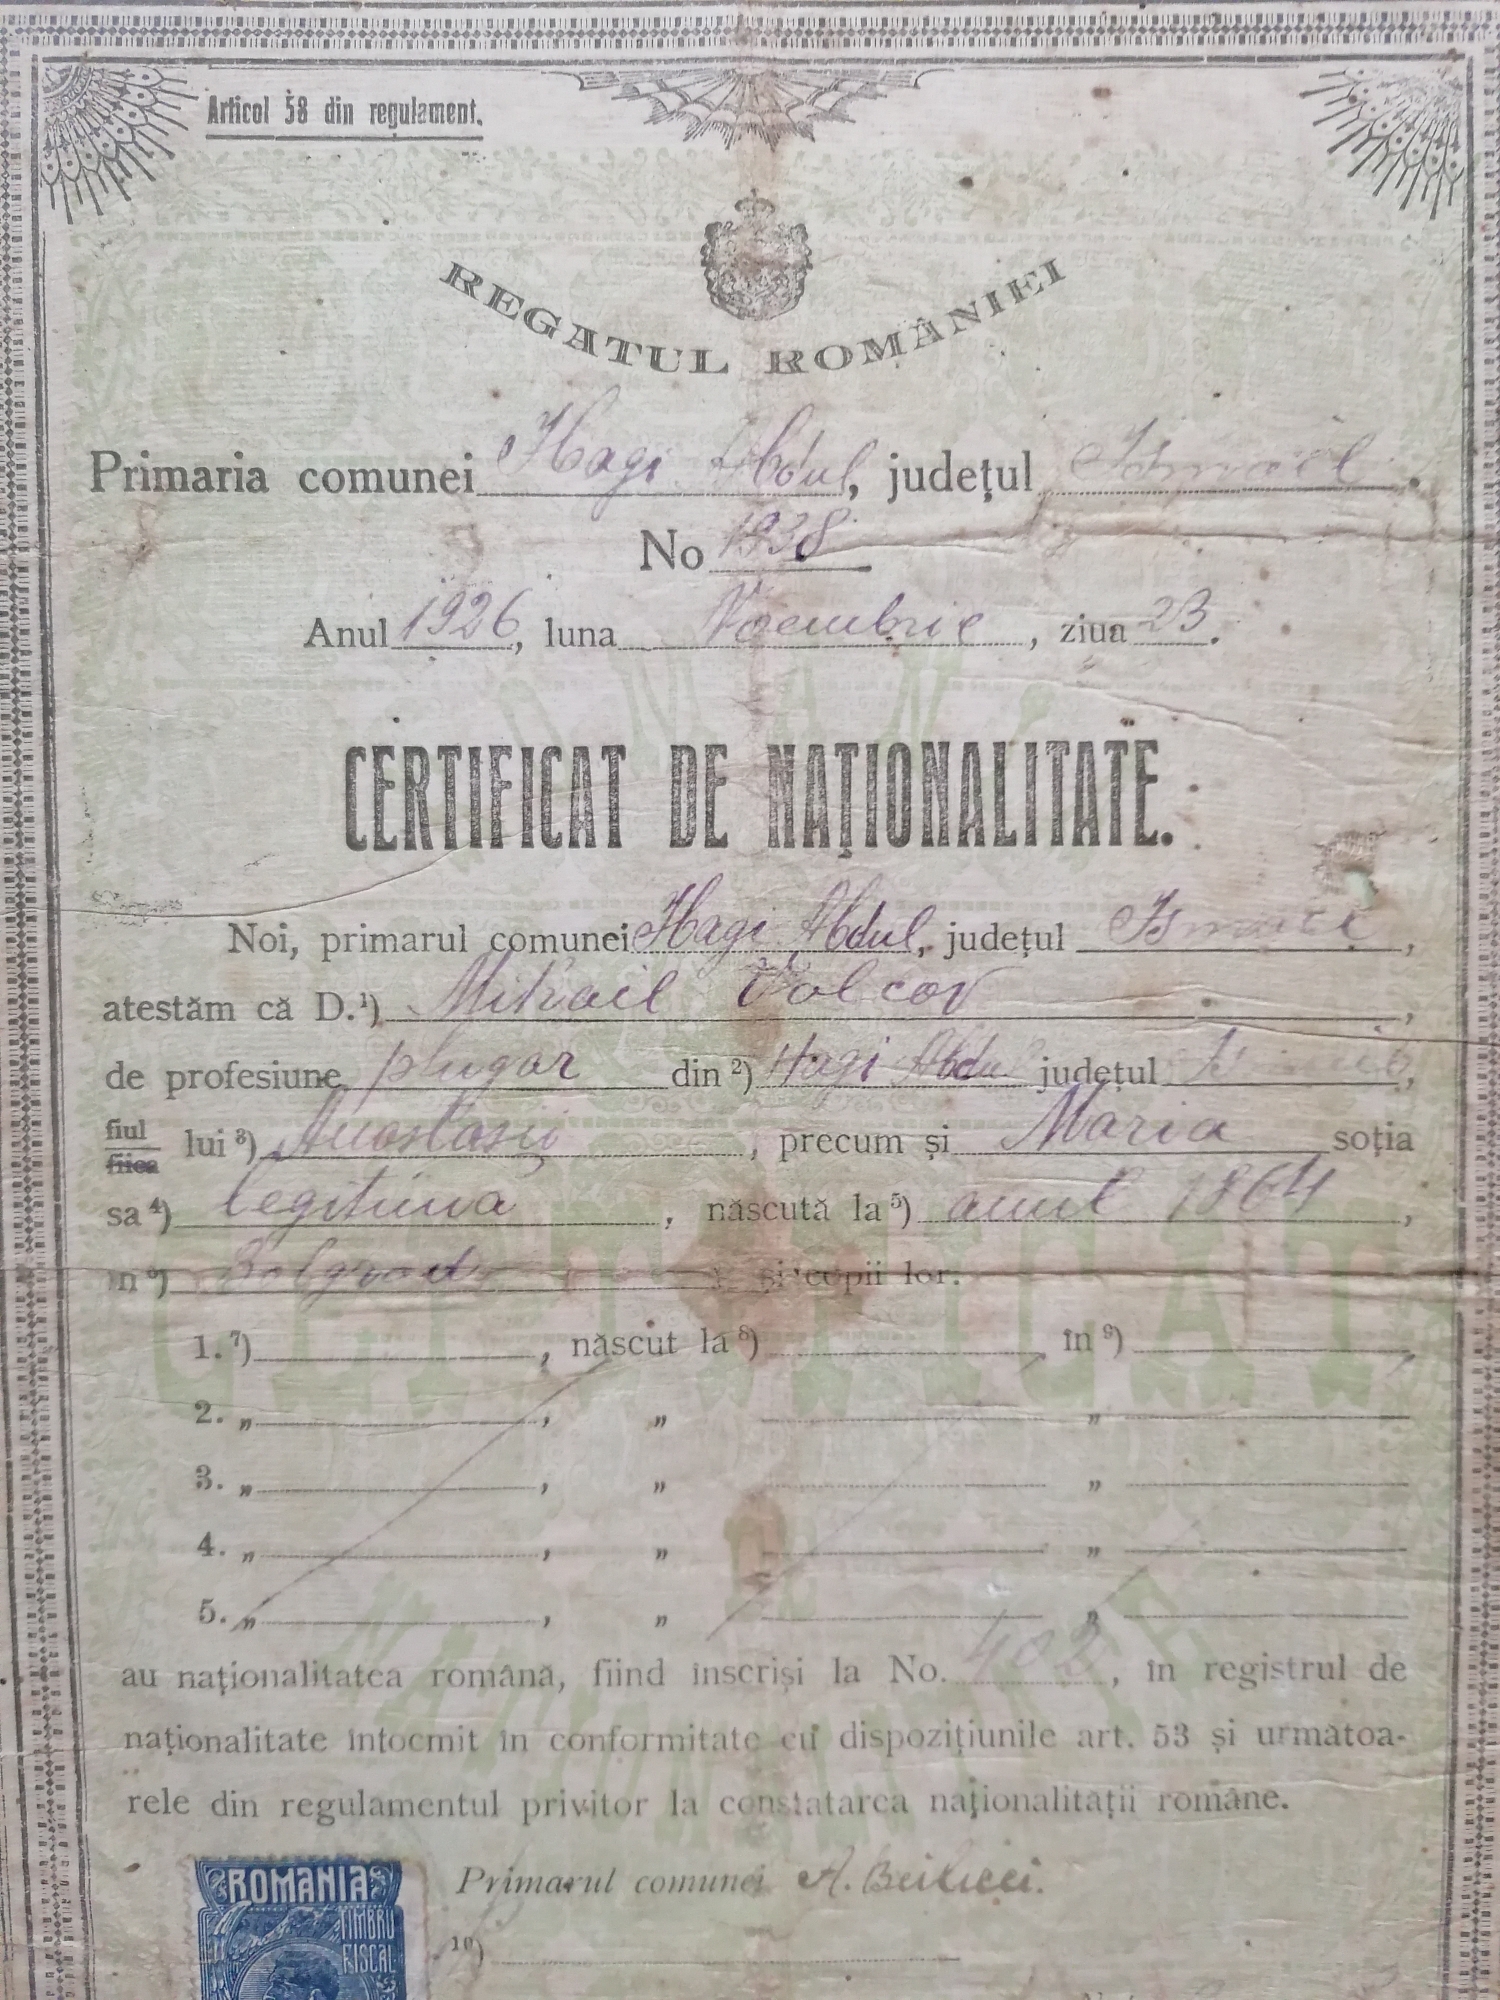 Articol 58 din regulament.
REGATUL ROMÂNIEI
Primaria comunei Hagi Abdul, județul Ismail.
No 1938
Anul 1926, luna Noembrie, ziua 23.
CERTIFICAT DE NAȚIONALITATE.
Noi, primarul comunei Hagi Abdul, județul Ismail,
atestăm că D.¹) Mihail Volcov,
de profesiune plugar din ²) Hagi Abdul județul
fiul
fiica
lui ³) Anastasii, precum și Maria soția
sa ⁴) legitima, născută la ⁵) anul 1864,
în ⁶) Bolgrad și copii lor:
1. ⁷) , născut la ⁸) în ⁹)
2. „ , „ „
3. „ , „ „
4. „ , „ „
5. „ , „ „
au naționalitatea română, fiind înscriși la No. 402, în registrul de
naționalitate întocmit în conformitate cu dispozițiunile art. 53 și următoa-
rele din regulamentul privitor la constatarea naționalității române.
Primarul comunei
¹⁰)
ROMANIA
TIMBRU
FISCAL